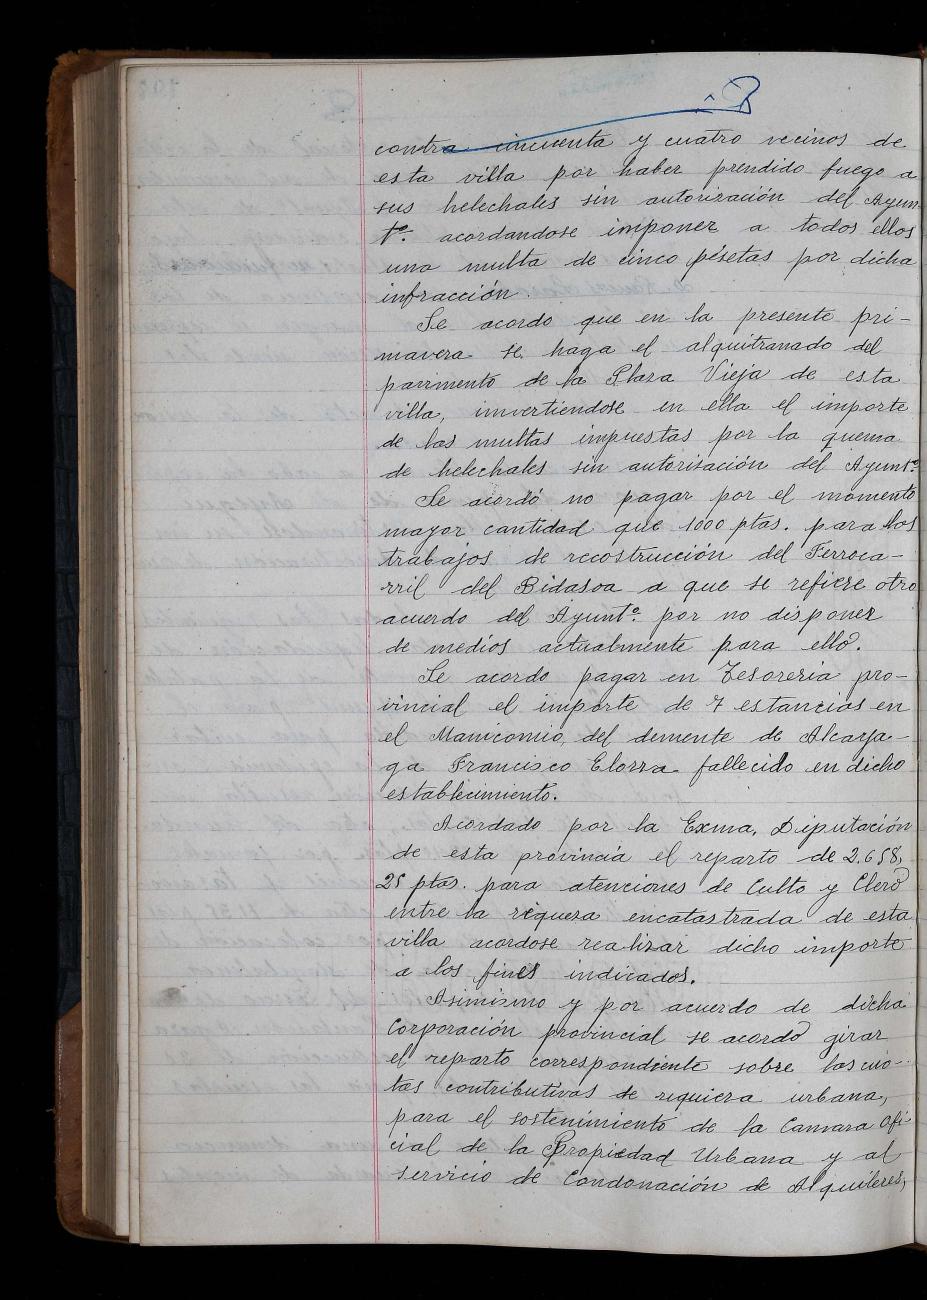 contra cincuenta y cuatro vecinos de
esta villa por haber prendido fuego a
sus helechales sin autorización del Ayun-
tº. acordandose imponer a todos ellos
una multa de cinco pésetas por dicha
infracción.
Se acordo que en la presente pri-
mavera se haga el alquitranado del
pavimento de la Plaza Vieja de esta
villa, invertiendose en ella el importe
de las multas impuestas por la quema
de helechales sin autorisación del Ayuntº.
Se acordó no pagar por el momento
mayor cantidad que 1000 ptas. para los
trabajos de recostrucción del Ferroca-
rril del Bidasoa a que se refiere otro
acuerdo del Ayuntº. por no disponer
de medios actualmente para ello.
Se acordo pagar en Tesoreria pro-
vincial el importe de 7 estancias en
el Manicomio, del demente de Alcaya-
ga Francisco Elorza fallecido en dicho
establecimiento.
Acordado por la Exma. Diputación
de esta provincia el reparto de 2.658,
25 ptas. para atenciones de Culto y Clero
entre la riquera encatastrada de esta
villa acordose realizar dicho importe
a los fines indicados.
Asimismo y por acuerdo de dicha
Corporación provincial se acordo girar
el reparto correspondiente sobre las cuo-
tas contributivas de riquiera urbana,
para el sostenimiento de la Camara Ofi-
cial de la Propiedad Urbana y al
servicio de Condonación de Alquileres,